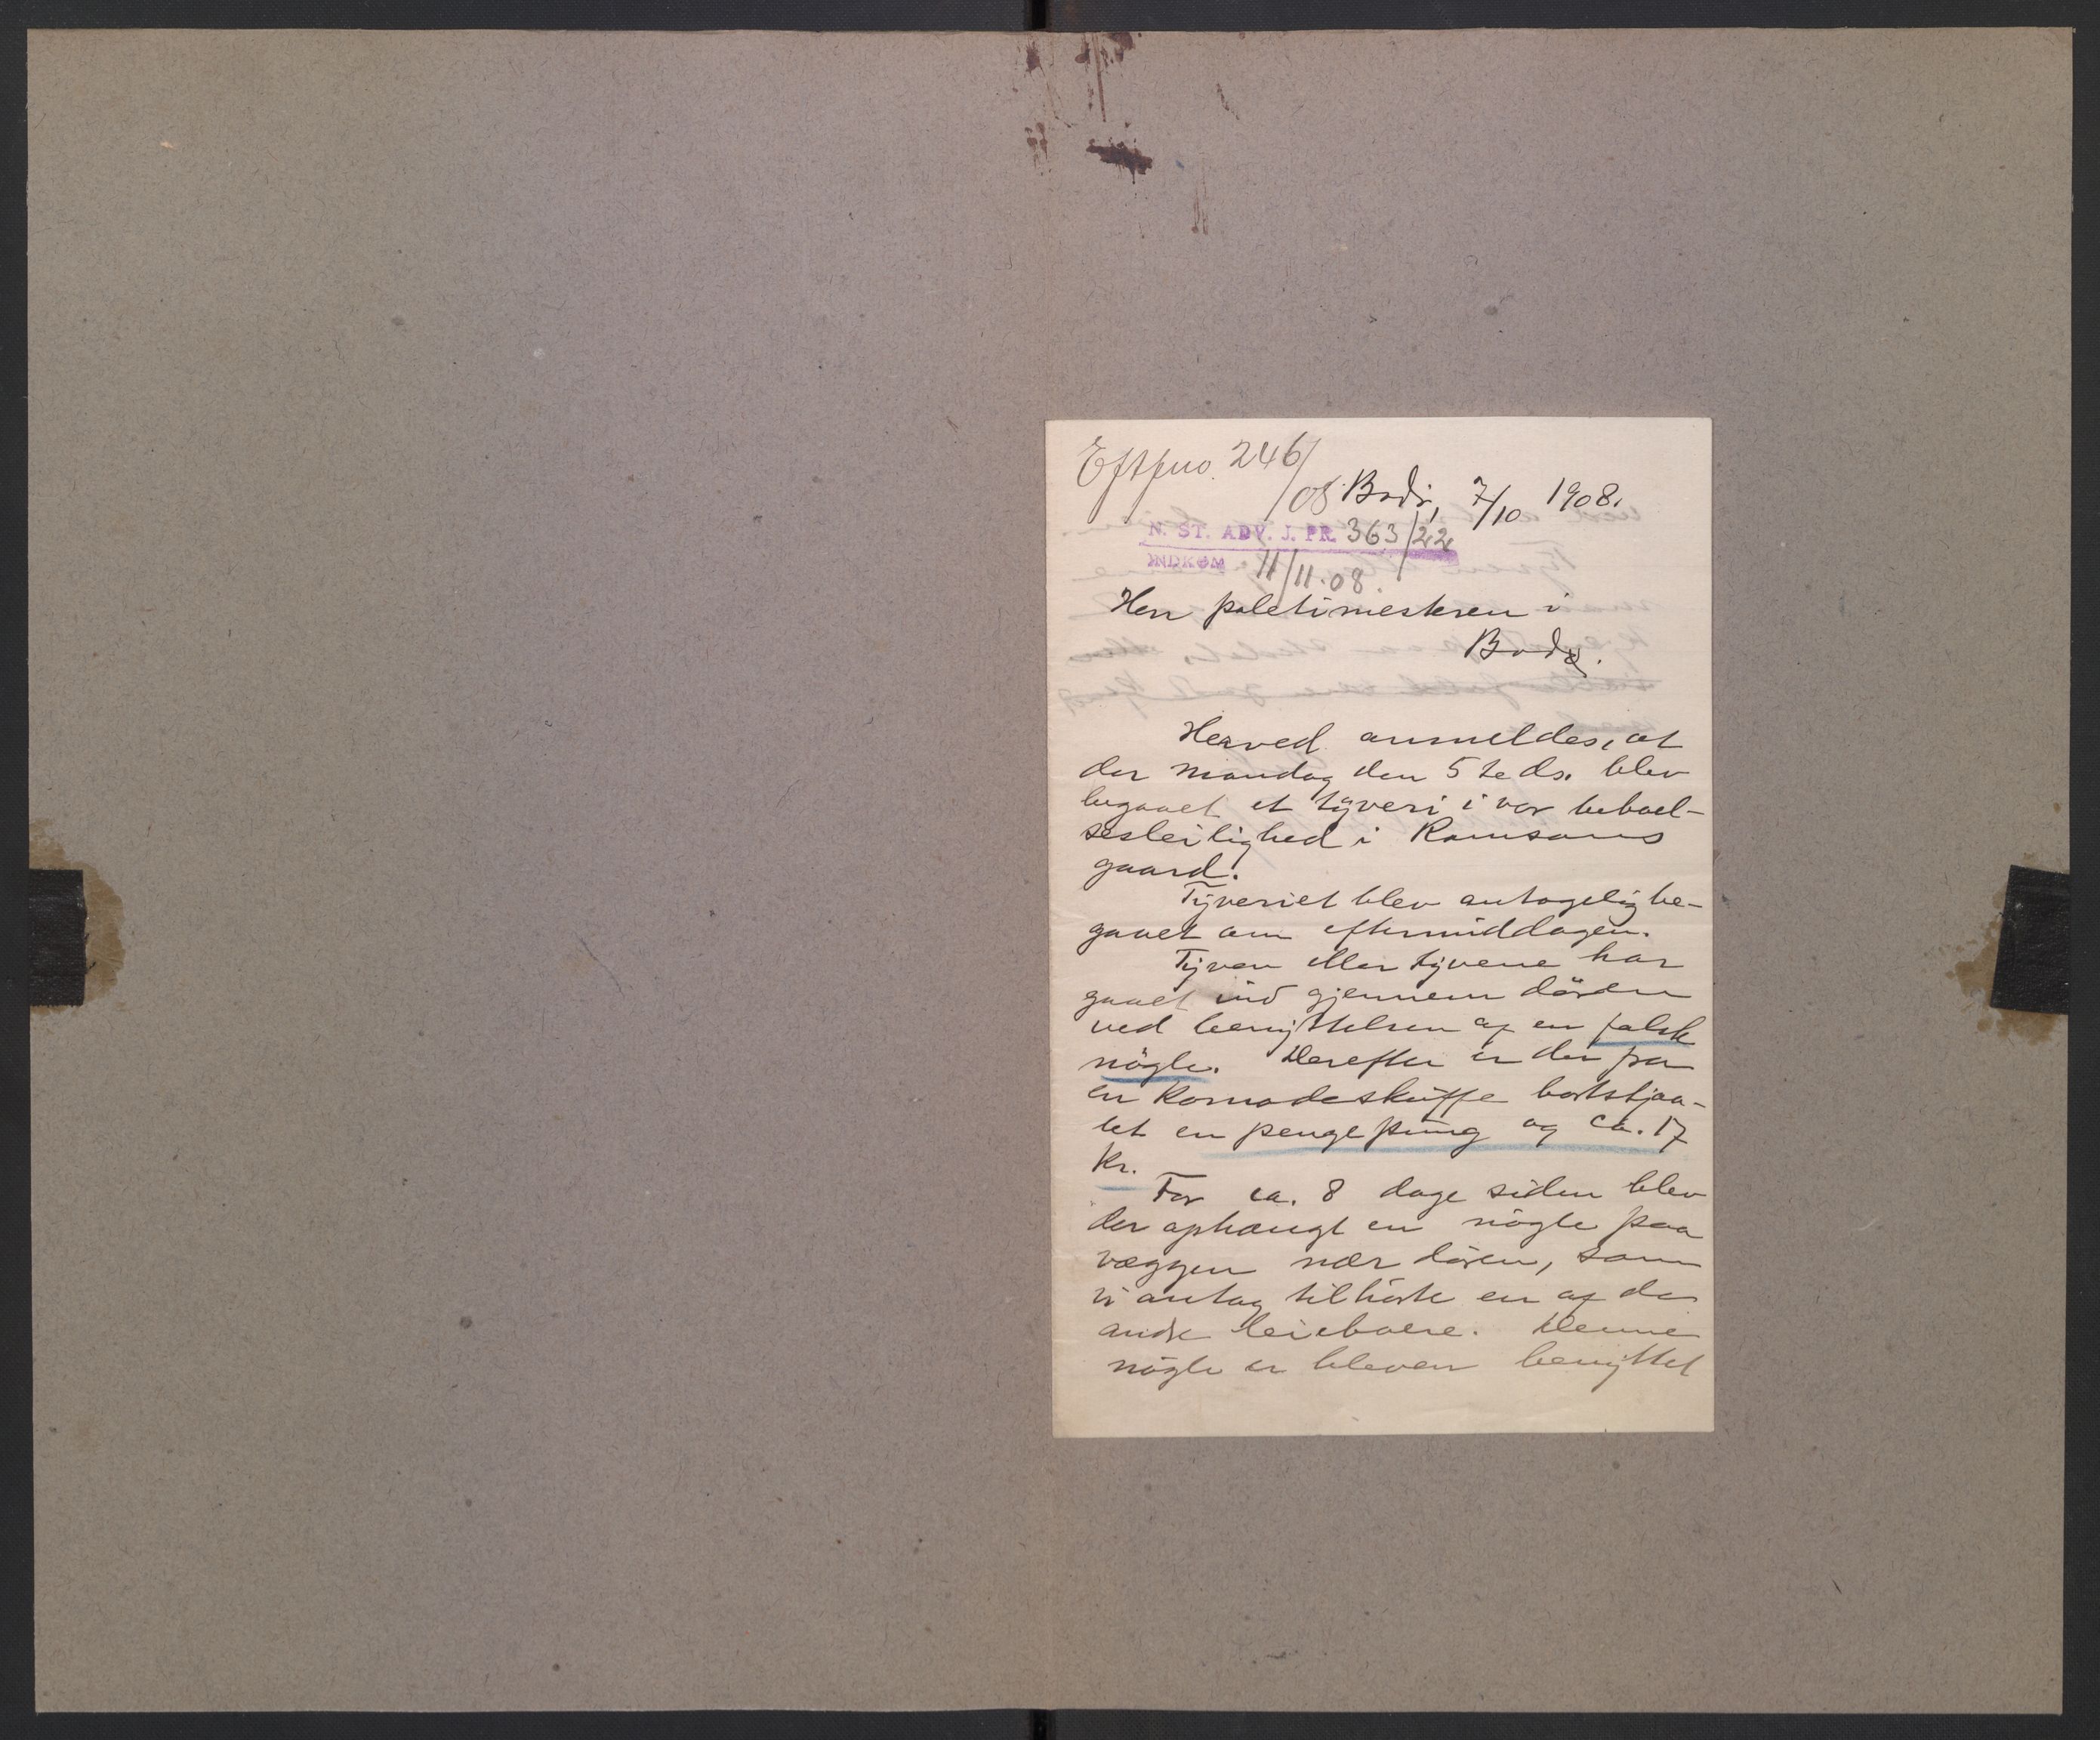 Eftfno. 246/08
Bodø, 7/10 1908.
N. ST. ADV. J. PR. 363/22
INDKOM 11/11.08.
Herr poletimesteren i
Bodø.
Herved anmeldes, at
der mandag den 5te ds. blev
begaaet et tyveri i vor beboel-
sesleilighed i Ramsams
gaard.
Tyveriet blev antagelig be-
gaaet om eftermiddagen.
Tyven eller tyvene har
gaaet ind gjennem døren
ved benyttelsen af en falsk
nøgle. Derefter er der fra
en komodeskuffe bortstjaa-
let en pengepung og ca. 17
kr.
For ca. 8 dage siden blev
der ophængt en nøgle paa
væggen nær døren, som
vi antog tilhørte en af de
andre leieboere. Denne
nøgle er bleven benyttet